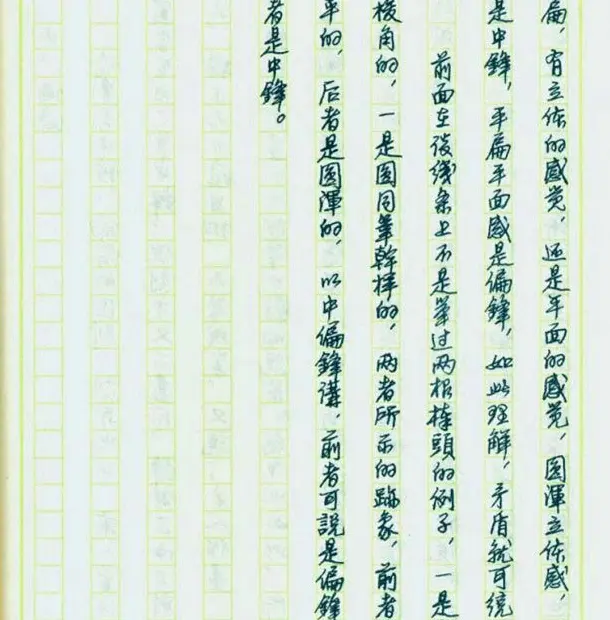 扁，有立体的感觉，还是平面的感觉，圆渾立体感，
是中鋒，平扁平面感是偏鋒，如此理解，矛盾就可统
前面在谈线条上不是举过两根棒頭的例子，一是
棱角的，一是圆同筆幹様的，两者所示的跡象，前者
平的，后者是圆渾的，以中偏鋒講，前者可説是偏鋒
者是中鋒。